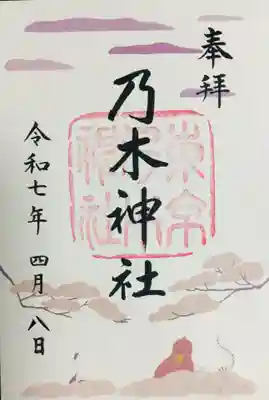 奉拝
乃木神社
令和七年 四月 八日